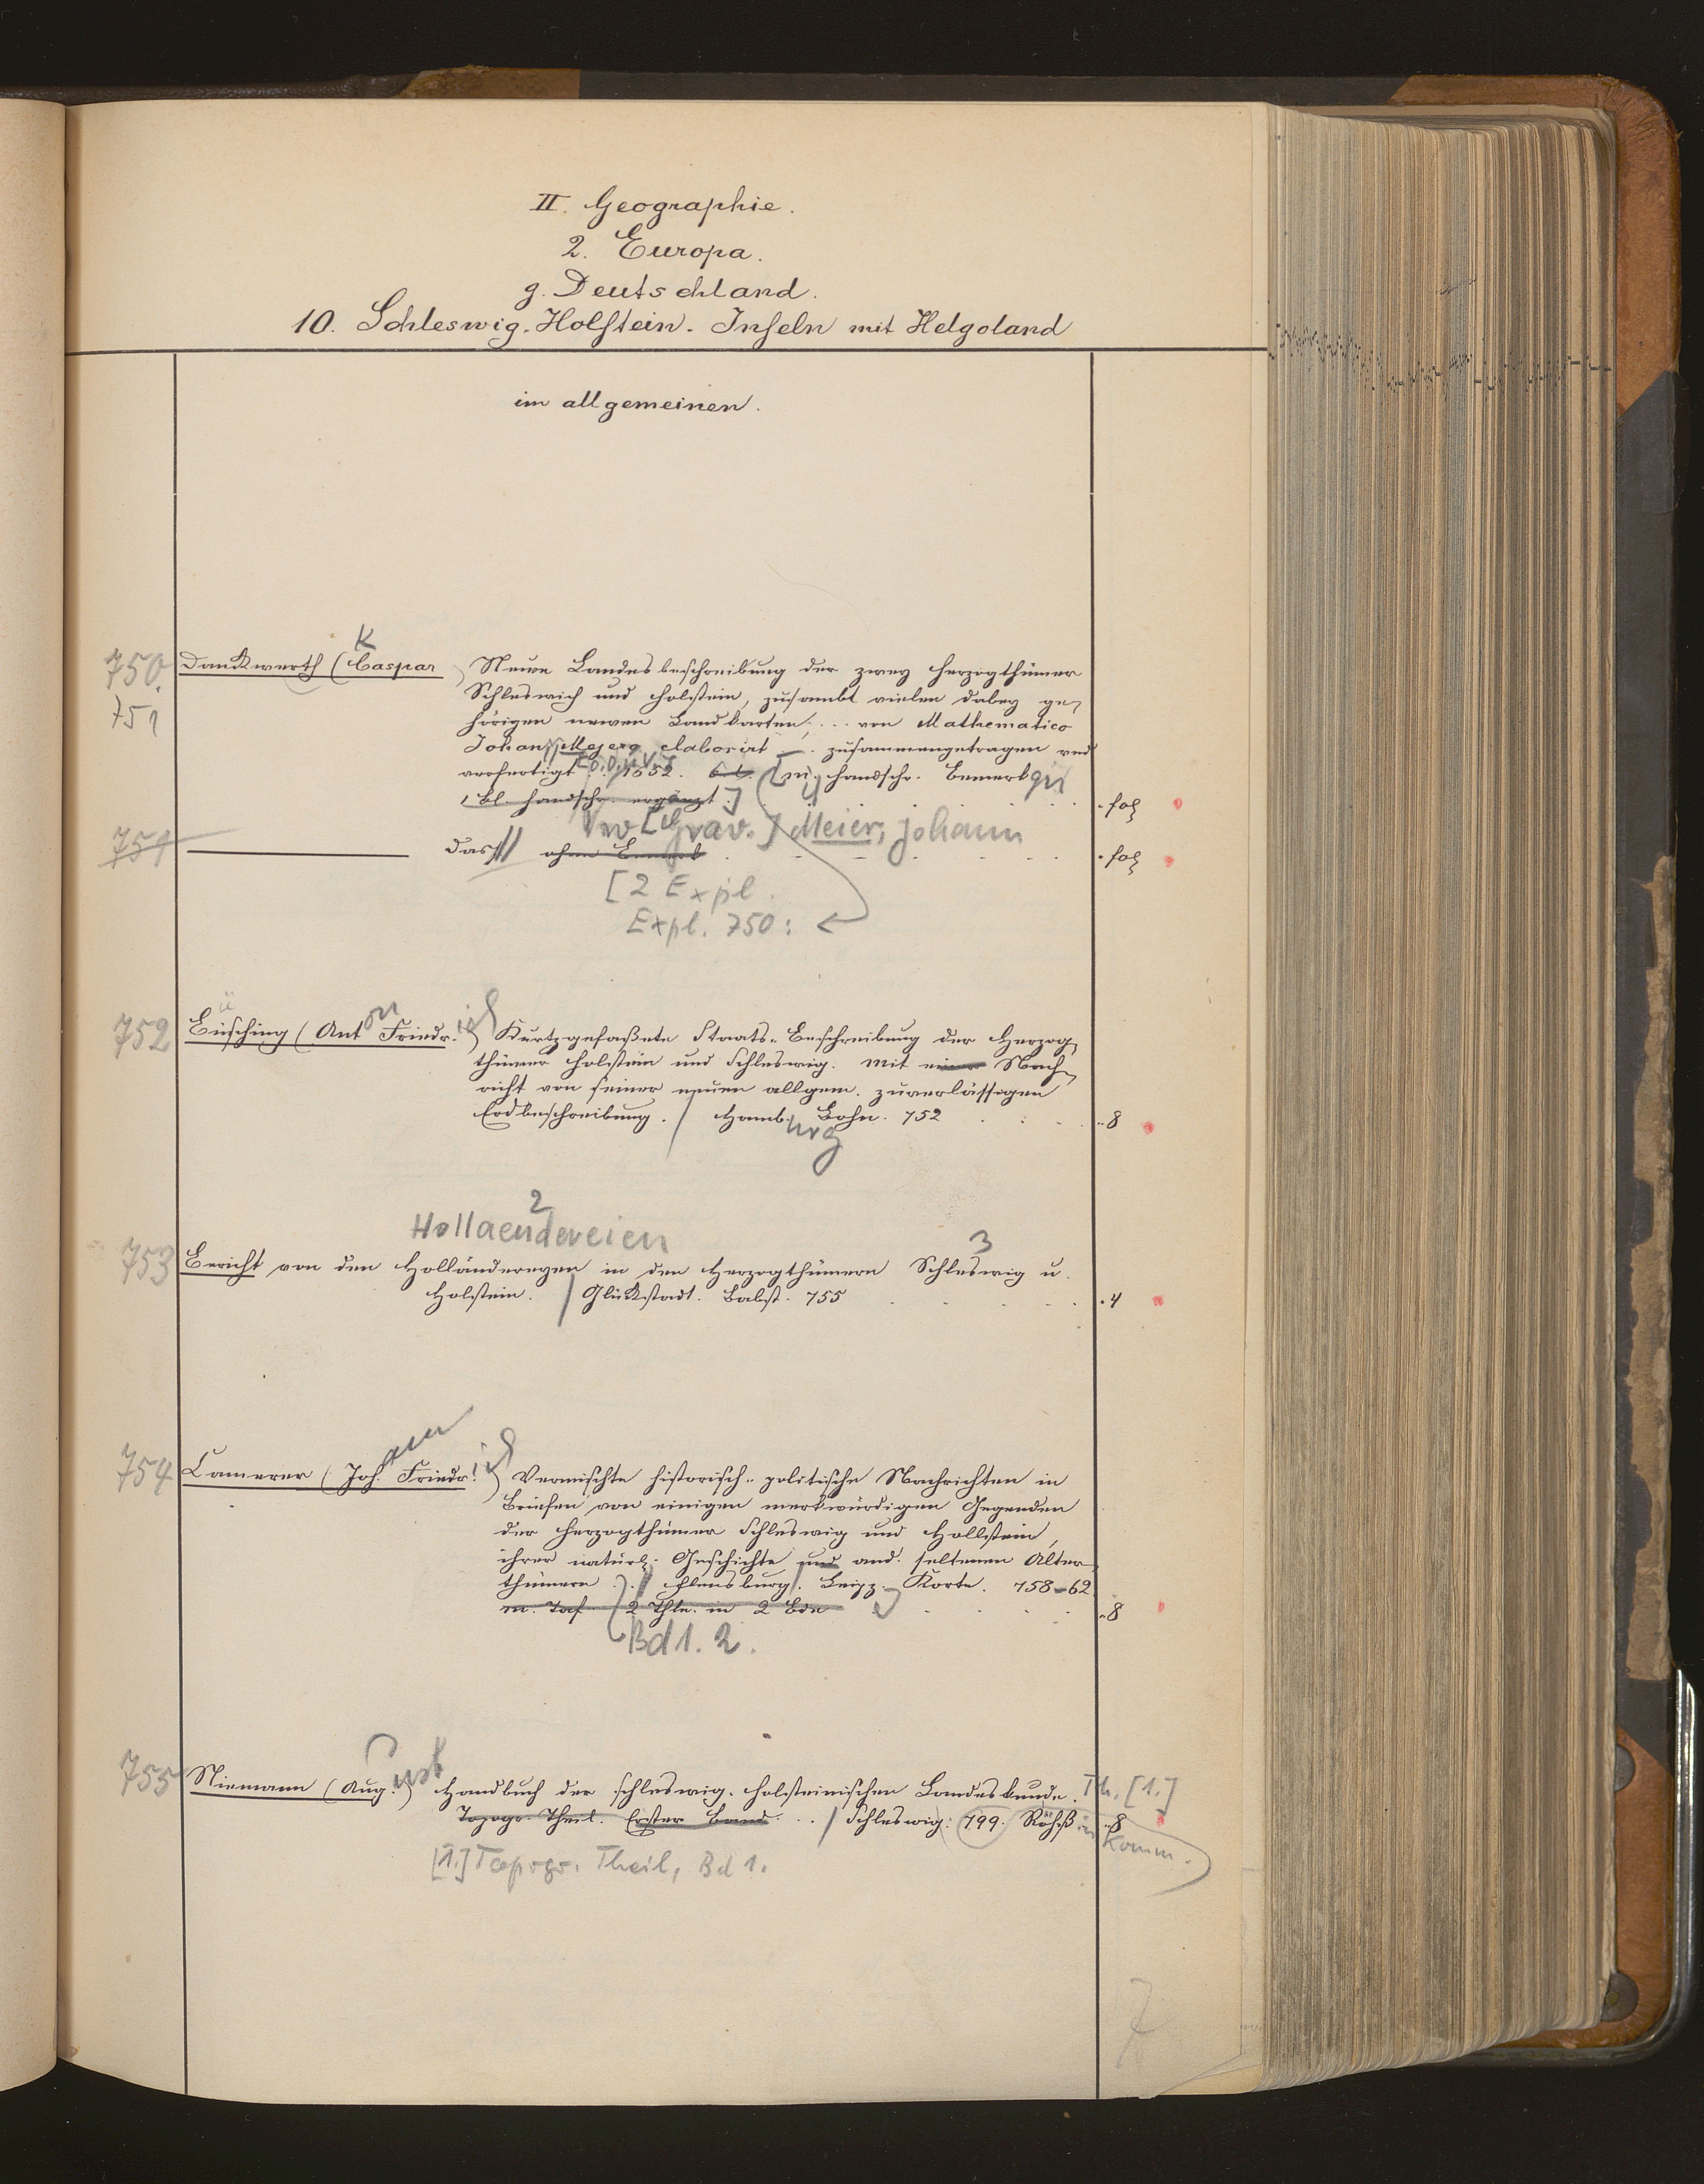 II. Geographie.
2. Europa.
g. Deutschland.
10. Schleswig-Holstein. Inseln mit Helgoland
im allgemeinen.
K
750. Danckwerth (Caspar) Newe Landesbeschreibung der zwey Herzogthümer
751 Schleswich und Holstein, zusambt vielen dabey ge-
hörigen newen Landkarten, ... von Mathematico
Johann Mejero elaborirt ... zusammengetragen und
verfertigt. 1652. [m. handschr. Bemerkgn
1 Bl. handschr. ergänzt.] . fol
Meier, Johann
751 ——— dass. ohne Bemerk . fol
[2 Expl.
Expl. 750: ←
752 Büsching (Anton Friedrich) Kurtzgefaßete Staats-Beschreibung der Herzog-
thümer Holstein und Schleswig. Mit einer Nach-
richt von seiner neuen allgem. zuverlässigen
Erdbeschreibung. / Hamburg Bohn. 752 . . . 8
2
Hollaendereien
3
753 Bericht von den Holländereyen in den Herzogthümern Schleswig u.
Holstein. / Glückstadt. Babst. 755 . 4
754 Camerer (Johann Friedrich) Vermischte historisch-politische Nachrichten in
Briefen von einigen merkwürdigen Gegenden
der Herzogthümer Schleswig und Hollstein,
ihrer natürl. Geschichte und and. seltenen Alter-
thümern. . // Flensburg/. Leipz. Korte. 758-62
m. Taf 2 Thle. in 2 Bde . 8
Bd 1. 2.
755 Niemann (August) Handbuch der schleswig-holsteinischen Landeskunde. Th. [1.]
Topogr. Theil. Erster Band. . . / Schleswig: 799. Röhß in Komm. 8
[1.] Topogr. Theil, Bd 1.
7